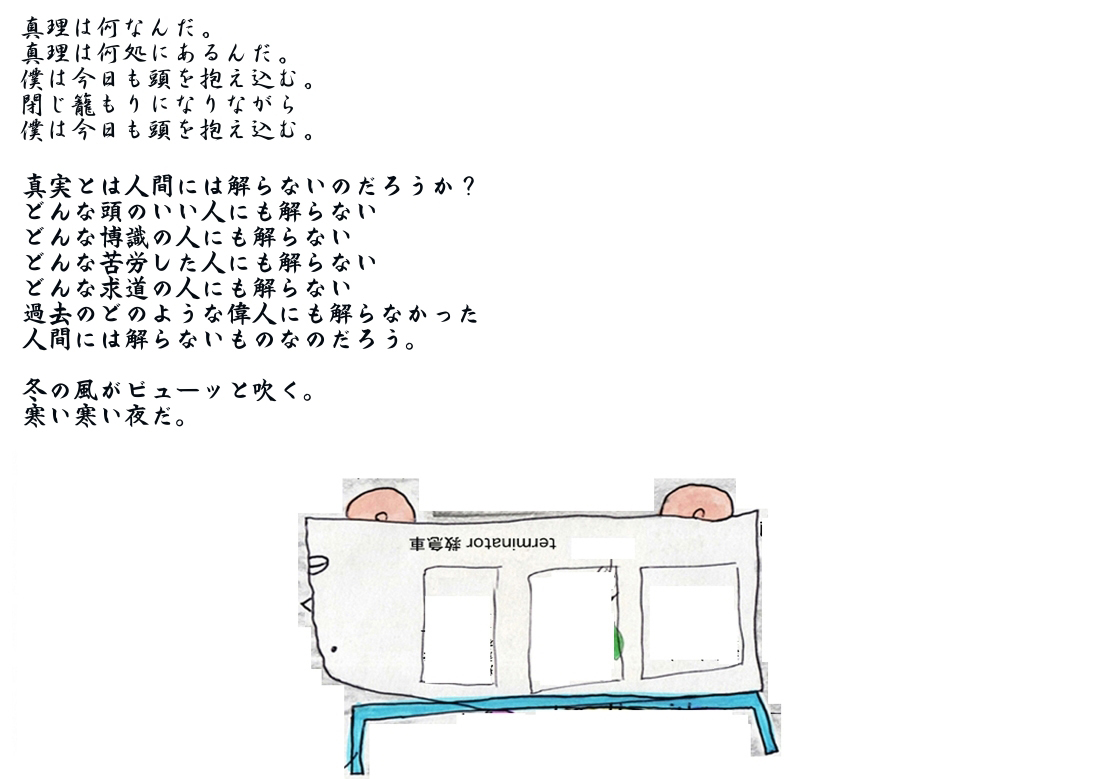 真理は何なんだ。
真理は何処にあるんだ。
僕は今日も頭を抱え込む。
閉じ籠もりになりながら
僕は今日も頭を抱え込む。
真実とは人間には解らないのだろうか？
どんな頭のいい人にも解らない
どんな博識の人にも解らない
どんな苦労した人にも解らない
どんな求道の人にも解らない
過去のどのような偉人にも解らなかった
人間には解らないものなのだろう。
冬の風がビューッと吹く。
寒い寒い夜だ。
terminator 救急車